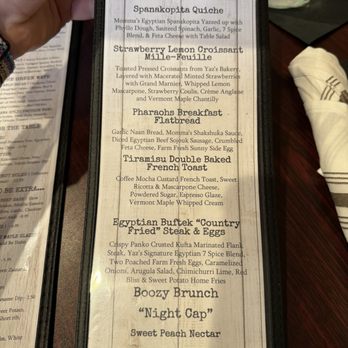 Spanakopita Quiche
Momma's Egyptian Spanakopita Yazzed up with
Phyllo Dough, Sauteed Spinach, Garlic, 7 Spice
Blend, & Feta Cheese with Table Salad
Strawberry Lemon Croissant
Mille-Feuille
Toasted Pressed Croissants from Yaz's Bakery,
Layered with Macerated Minted Strawberries
with Grand Marnier, Whipped Lemon
Mascarpone, Strawberry Coulis, Crème Anglaise
and Vermont Maple Chantilly
Pharaohs Breakfast
Flatbread
Garlic Naan Bread, Momma's Shakshuka Sauce,
Diced Egyptian Beef Soujouk Sausage, Crumbled
Feta Cheese, Farm Fresh Sunny Side Egg
Tiramisu Double Baked
French Toast
Coffee Mocha Custard French Toast, Sweet
Ricotta & Mascarpone Cheese,
Powdered Sugar, Espresso Glaze,
Vermont Maple Whipped Cream
Egyptian Buftek "Country
Fried" Steak & Eggs
Crispy Panko Crusted Kufta Marinated Flank
Steak, Yaz's Signature Egyptian 7 Spice Blend,
Two Poached Farm Fresh Eggs, Caramelized
Onions, Arugula Salad, Chimichurri Lime, Red
Bliss & Sweet Potato Home Fries
Boozy Brunch
"Night Cap"
Sweet Peach Nectar